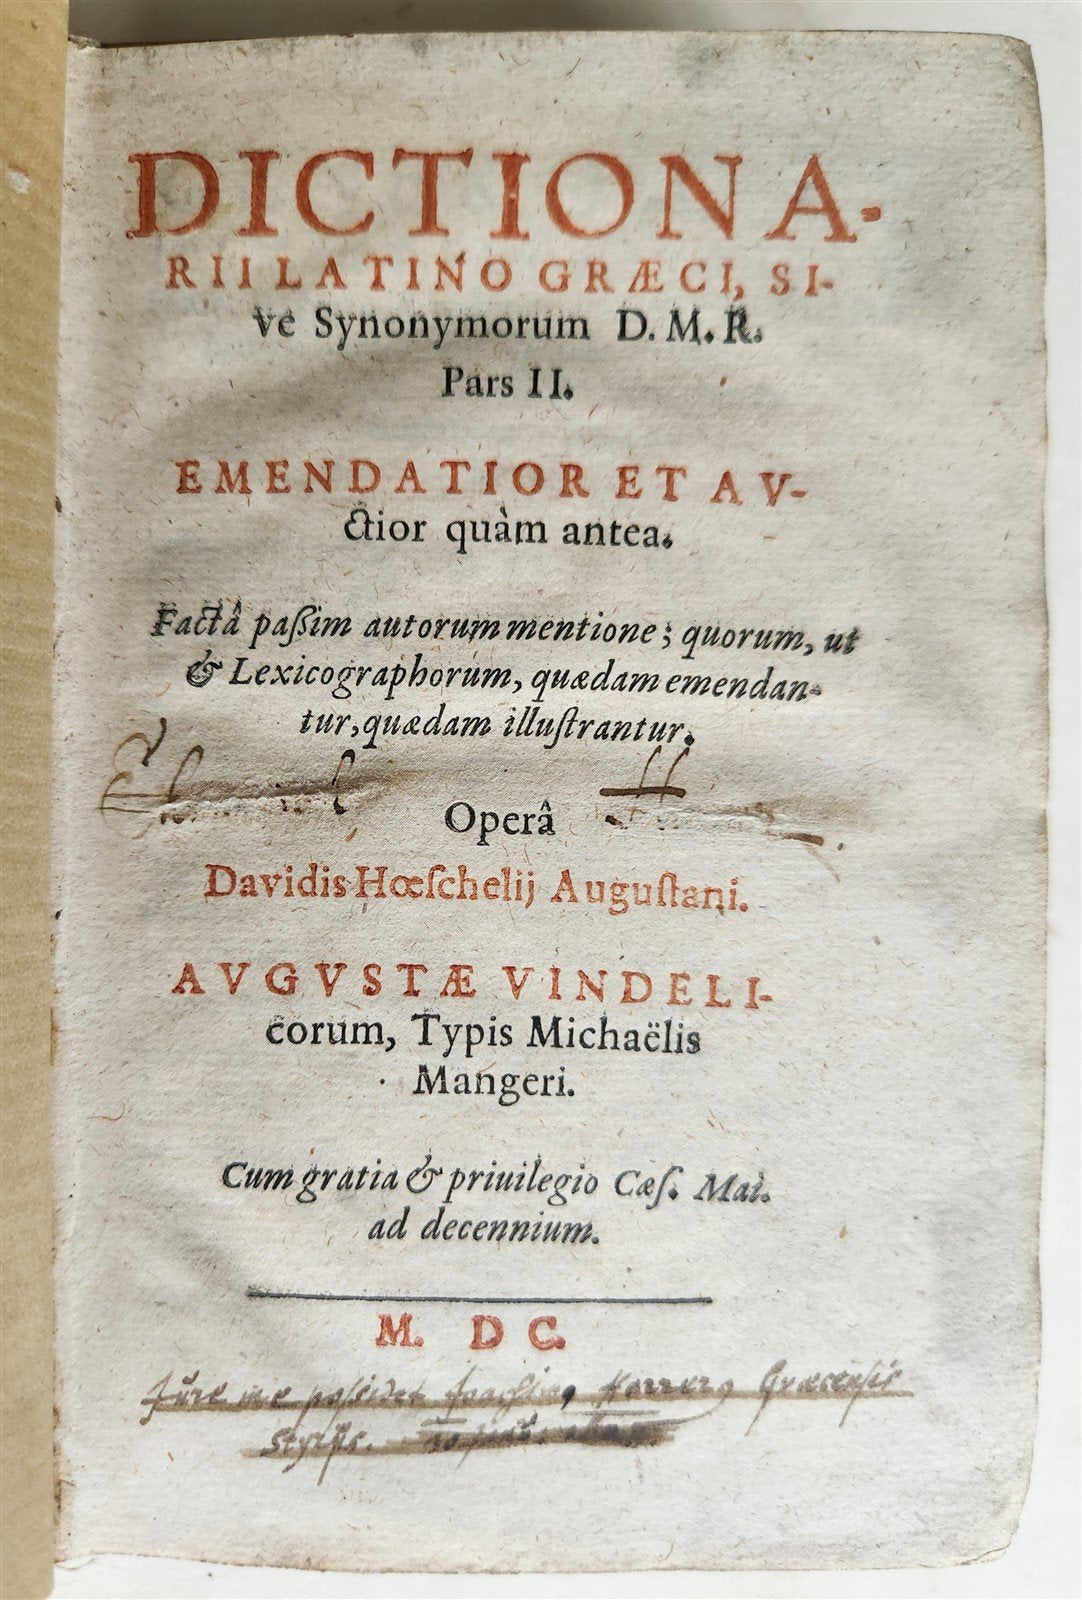 DICTIONA-
RII LATINO GRÆCI, SI-
ve Synonymorum D. M. R.
Pars II.
EMENDATIOR ET AV-
ctior quàm antea.
Factâ paſſim autorum mentione; quorum, ut
& Lexicographorum, quædam emendan-
tur, quædam illuſtrantur.
Operâ
Davidis Hœſchelij Auguſtani.
AVGVSTÆ VINDELI-
corum, Typis Michaëlis
Mangeri.
Cum gratia & priuilegio Cæſ. Mai.
ad decennium.
M. DC.
Jure me poſsidet Græcensis